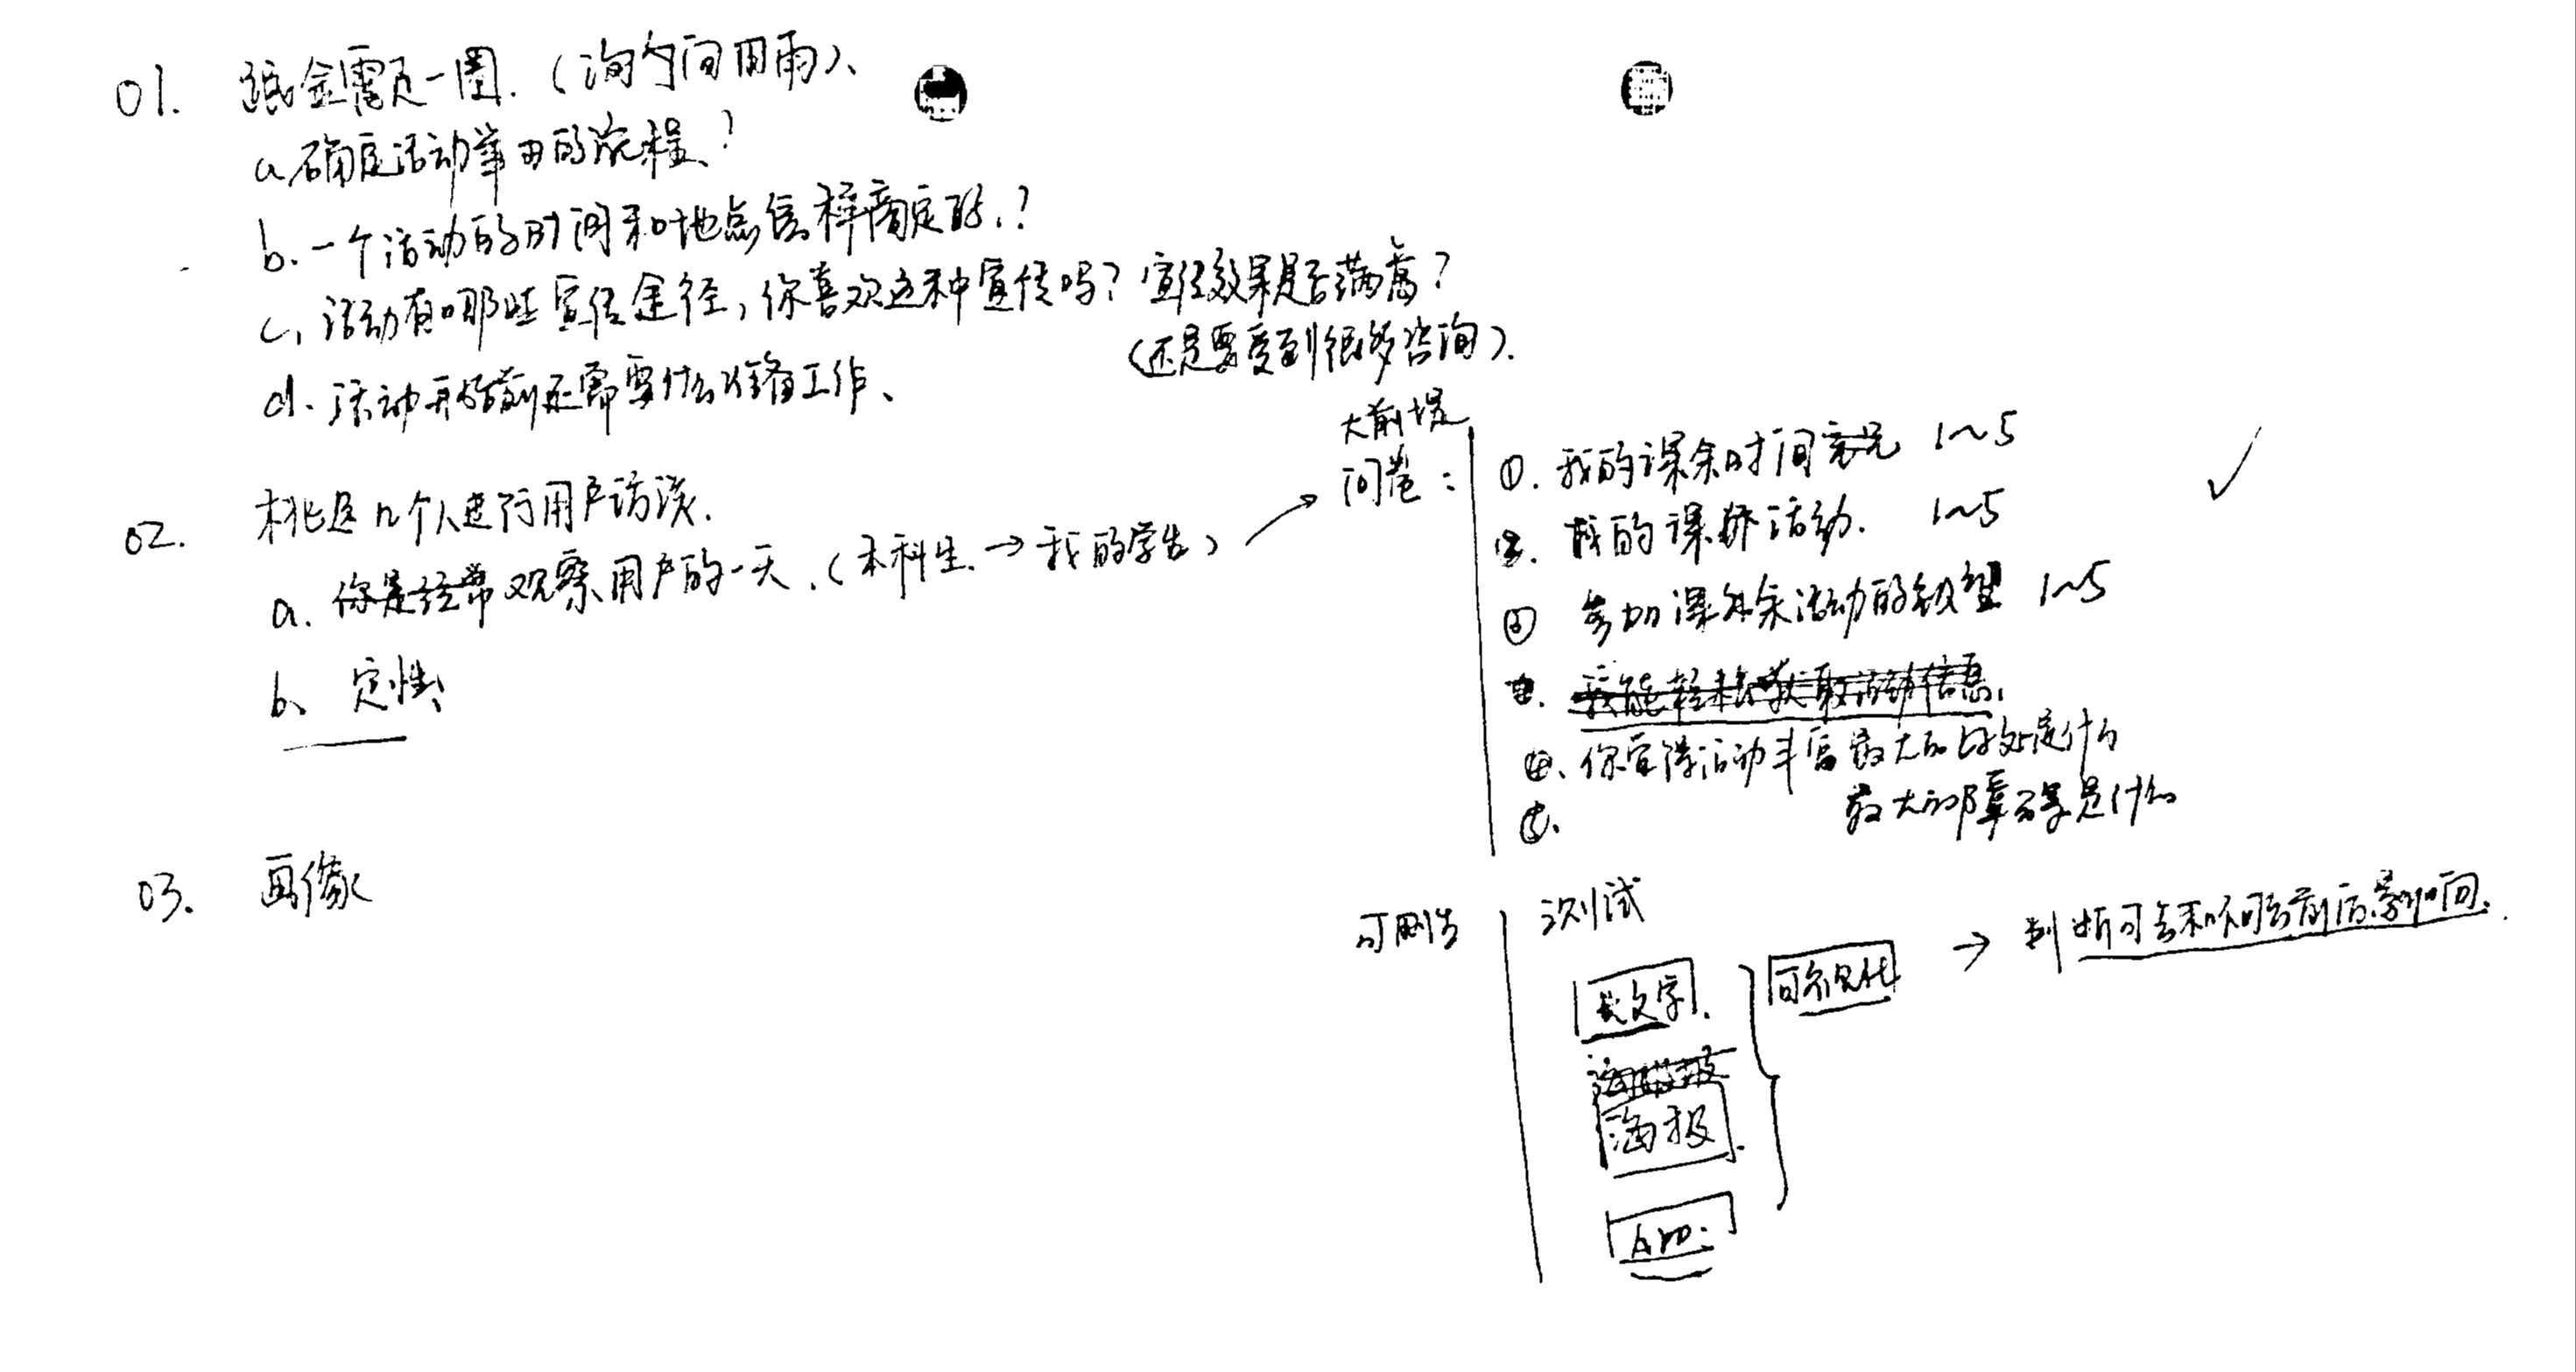 01. 一圈.（问用雨）、
a. 确定活动的流程、？
b. 一个活动的时间和地点怎样商定的.？
c. 活动有哪些宣传途径，你喜欢这种宣传吗？宣传效果是否满意？
（还是要受到很多咨询）.
d. 活动开始前还需要什么准备工作、
02. 挑选几个人进行用户访谈.
a. 你是经常 观察用户的一天.（本科生. → 我的学生）
b、定性
03. 画像
大前提
问卷：
①. 我的课余时间 1~5
②. 我的课外活动. 1~5
③ 参加课余活动的欲望 1~5
我能轻松获取活动信息.
④. 你觉得活动丰富最大的好处是什么
⑤. 最大的障碍是什么
可用性 测试
长文字.
海报
海报.
App.
可视化
→ 判断可去和不可去前后 时间.